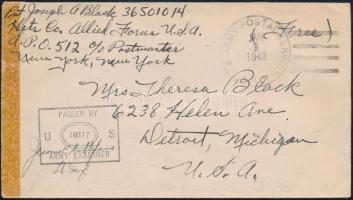 Pvt Joseph A Black 36501014
Hqts Co. Allied Forces U.S.A.
A.P.O. 512 c/o Postmaster
New York, New York
(Free)
U.S. ARMY POSTAL SERV
1943
Mrs Theresa Black
6238 Helen Ave.
Detroit, Michigan
U.S.A.
PASSED BY
U 10317 S
ARMY EXAMINER